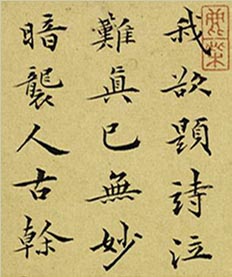 我欲題詩泣
難真已無妙
暗襲人古幹